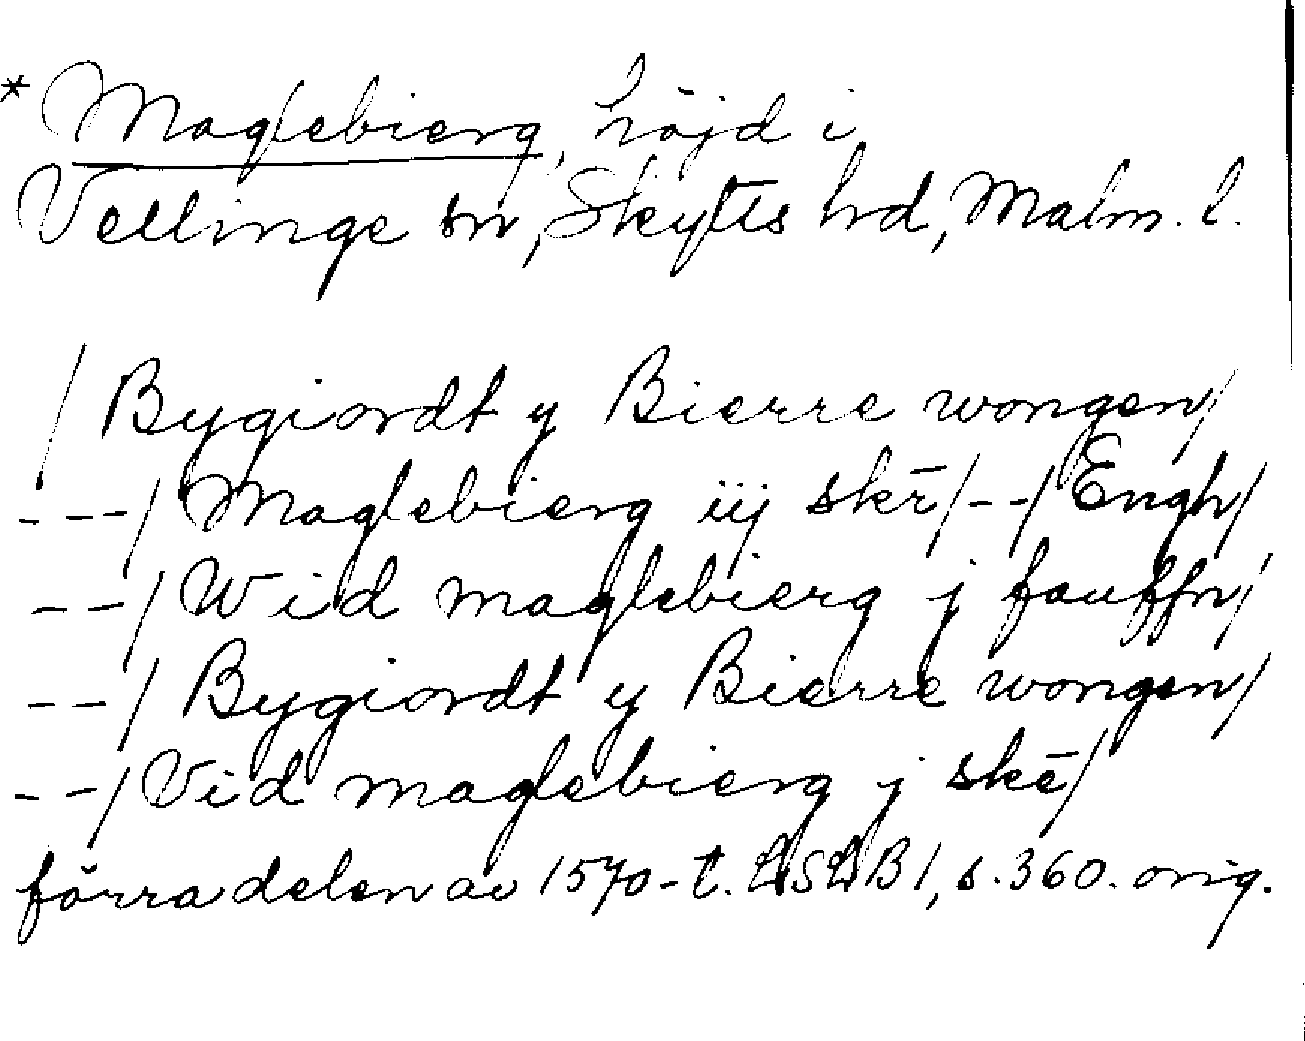 * Maglebierg, höjd i
Vellinge sn, Skytts hrd, Malm. l.
/ Bygiordt y Bierre wongen/
---/ Maglebierg iij skē/--/Engh/
--/ Wid maglebierg j fauffn/
--/ Bygiordt y Bierre wongen/
--/ Vid maglebierg j skē/
förra delen av 1570-t. LSLB1, s. 360. orig.